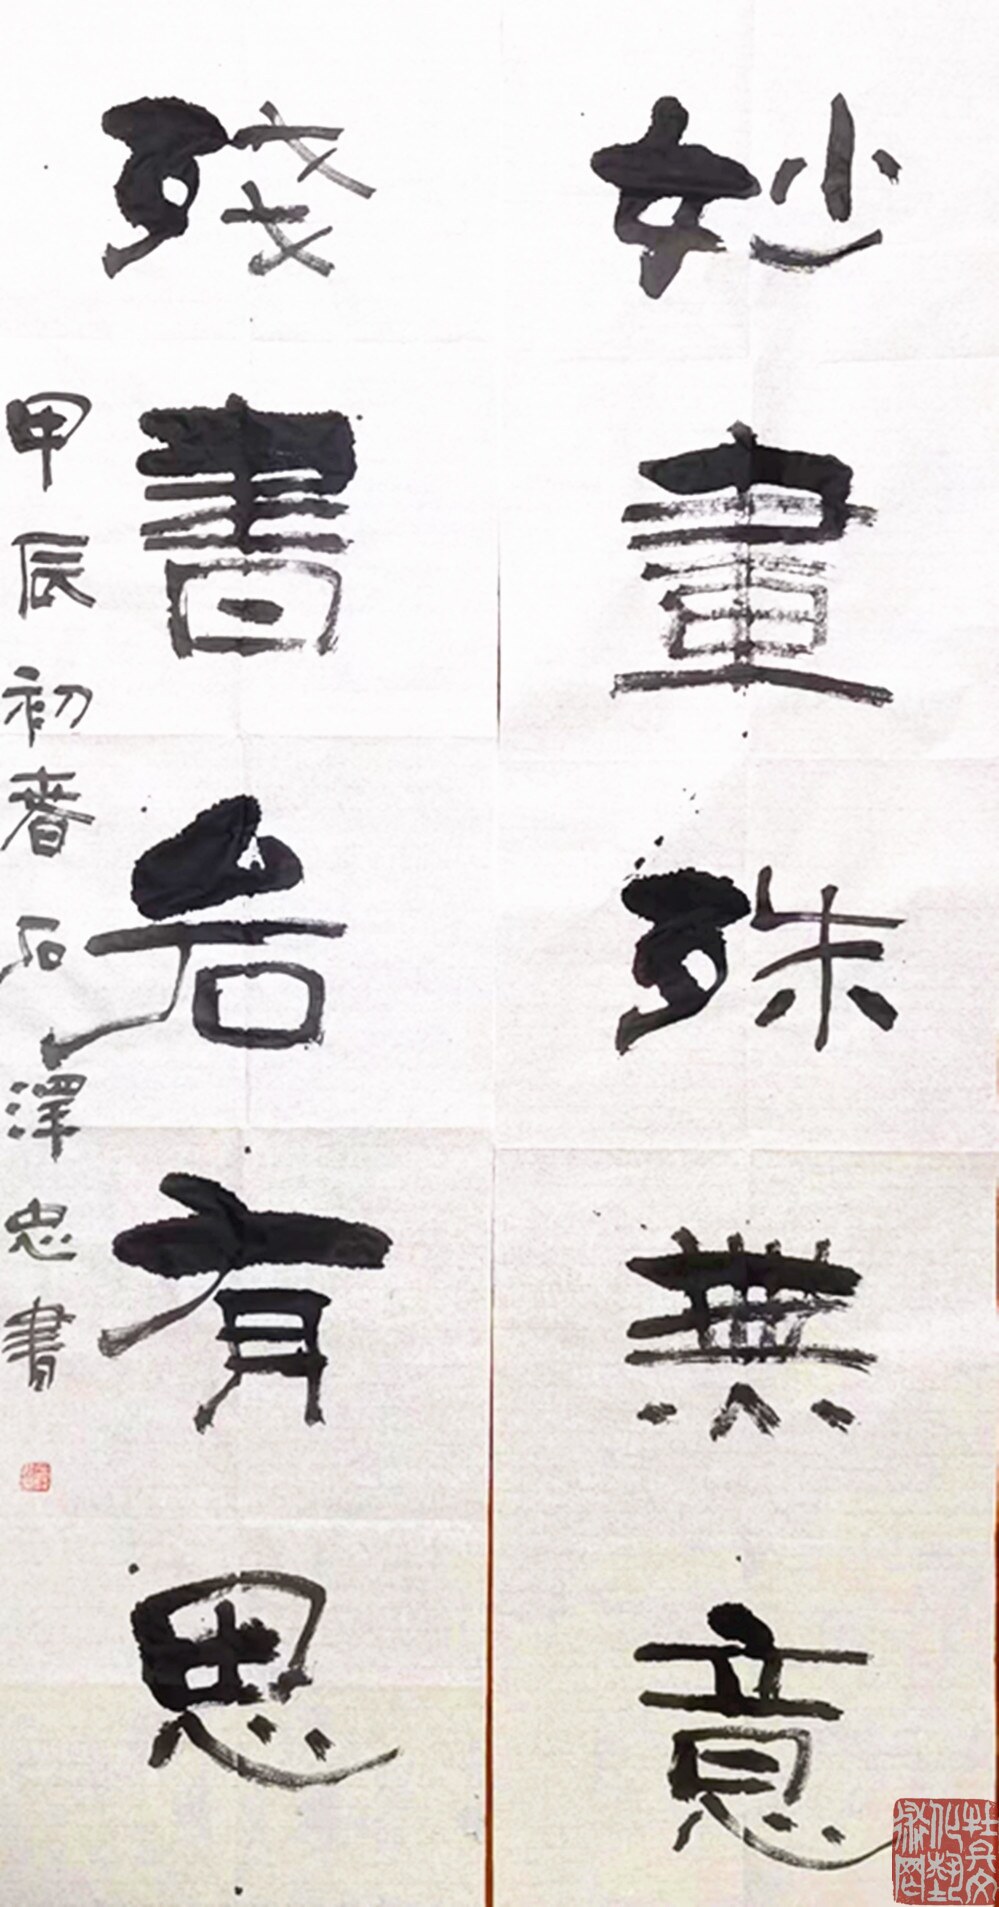 妙畫殊無意
殘書若有思
甲辰初春石澤忠書